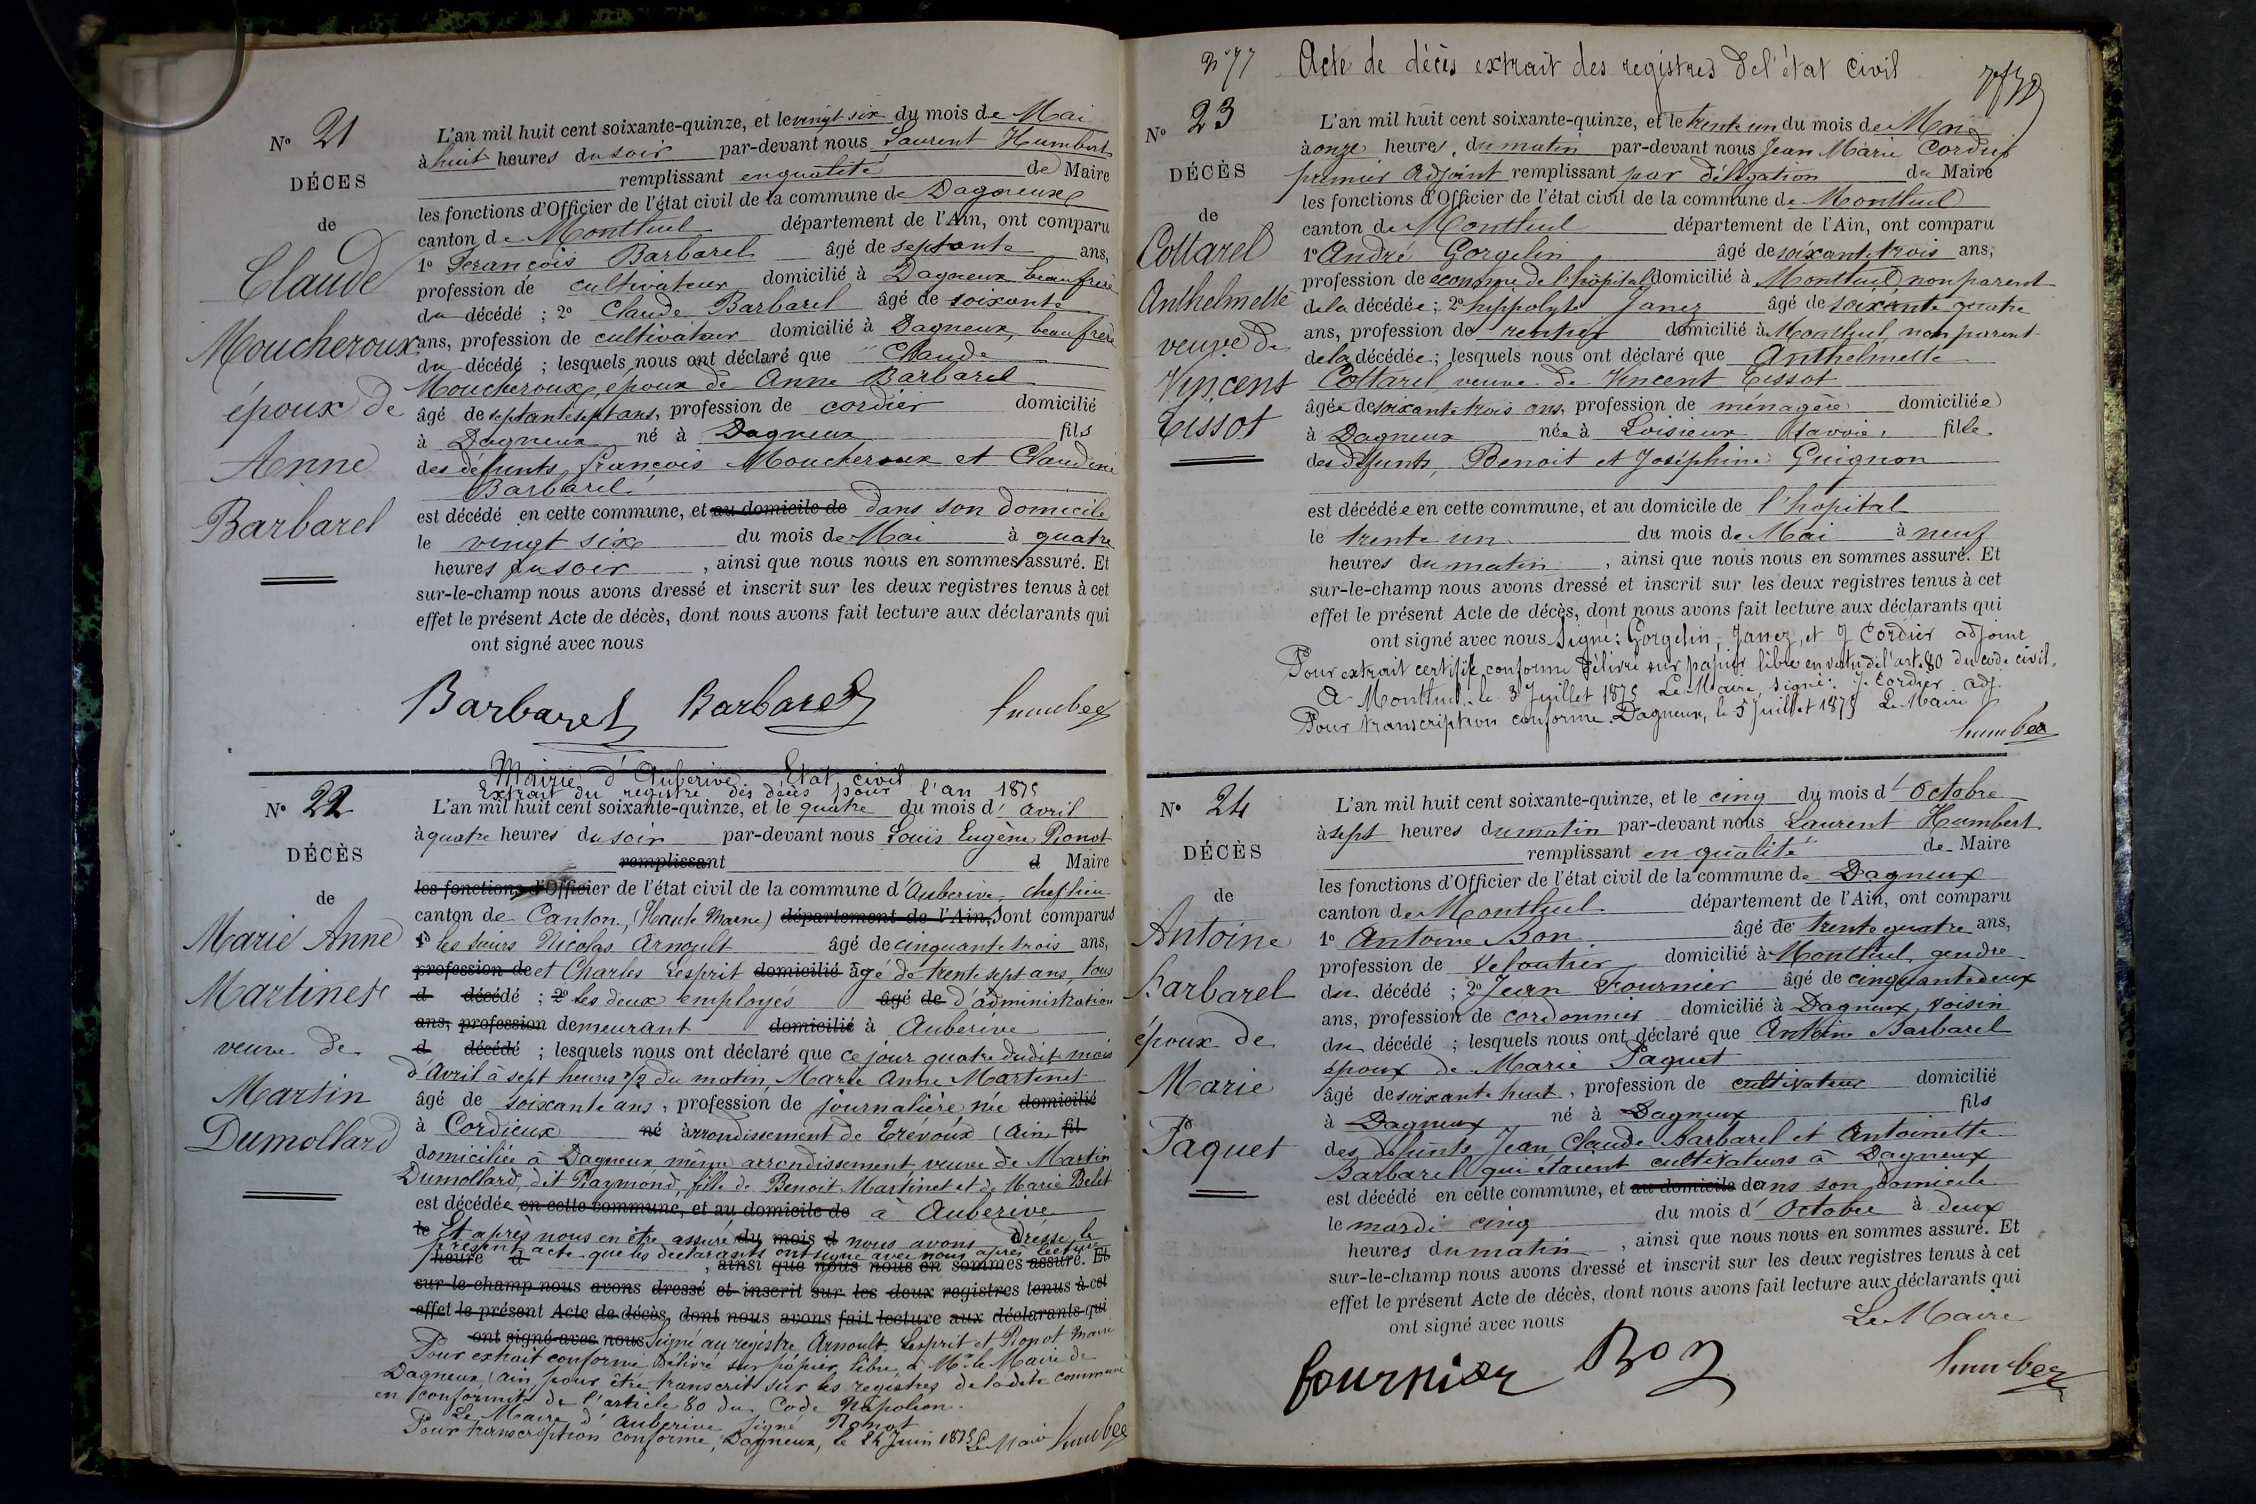 N° 21
DÉCES
de
Claude
Moucheroux
époux de
Anne
Barbarel
L'an mil huit cent soixante-quinze, et le vingt six du mois de Mai
à huit heures du soir par-devant nous Laurent Humbert
remplissant en qualité de Maire
les fonctions d'Officier de l'état civil de la commune de Dagneux
canton de Montluel département de l'Ain, ont comparu
1° Francois Barbarel âgé de septante ans,
profession de cultivateur domicilié à Dagneux beau frère
du décédé ; 2° Claude Barbarel âgé de soixante
ans, profession de cultivateur domicilié à Dagneux, beau frère
du décédé ; lesquels nous ont déclaré que Claude
Moucheroux, époux de Anne Barbarel
âgé de septante sept ans, profession de cordier domicilié
à Dagneux né à Dagneux fils
des défunts françois Moucheroux et Claudine
Barbarel
est décédé en cette commune, et au domicile de dans son domicile
le vingt six du mois de Mai à quatre
heures du soir , ainsi que nous nous en sommes assuré. Et
sur-le-champ nous avons dressé et inscrit sur les deux registres tenus à cet
effet le présent Acte de décès, dont nous avons fait lecture aux déclarants qui
ont signé avec nous
Barbaret Barbaret humber
Mairie d'Auberive. Etat civil
Extrait du registre des décès pour l'an 1875
N° 22
DÉCÈS
de
Marie Anne
Martinet
veuve de
Martin
Dumollard
L'an mil huit cent soixante-quinze, et le quatre du mois d'avril
à quatre heures du soir par-devant nous Louis Eugène Ronot
remplissant d Maire
les fonctions d'Officier de l'état civil de la commune d'Auberive, chef lieu
canton de Canton, (Haute Marne) département de l'Ain, sont comparus
1° les sieurs Nicolas Arnoult âgé de cinquante trois ans,
profession de et Charles Lesprit domicilié âgé de trente sept ans, tous
d décédé ; 2° les deux employés âgé de d'administration
ans, profession demeurant domicilié à Auberive
d décédé ; lesquels nous ont déclaré que ce jour quatre dudit mois
d'Avril à sept heures 1/2 du matin, Marie Anne Martinet
âgé de soixante ans, profession de journalière née domicilié
à Cordieux né arrondissement de Trévoux (Ain) fil
domiciliée à Dagneux même arrondissement veuve de Martin
Dumollard, dit Raymond, fille de Benoit Martinet et de Marie Belet
est décédée en cette commune, et au domicile de à Auberive
le Et après nous en être assuré du mois d nous avons dressé le
présent acte que les déclarants ont signé avec nous après lecture
heure d , ainsi que nous nous en sommes assuré. Et
sur-le-champ nous avons dressé et inscrit sur les deux registres tenus à cet
effet le présent Acte de décès, dont nous avons fait lecture aux déclarants qui
ont signé avec nous Signé au registre Arnoult Lesprit et Ronot Maire
Pour extrait conforme Délivré sur papier libre à Mr le Maire de
Dagneux (ain) pour être transcrit sur les registres de ladite commune
en conformité de l'article 80 du Code Napoléon.
Le Maire d'Auberive signé Ronot
Pour transcription conforme, Dagneux, le 24 Juin 1875 Le Maire humber
N° 77 Acte de décès extrait des registres de l'état civil
N° 23
DÉCÈS
de
Cottarel
Anthelmette
veuve de
Vincent
Tissot
L'an mil huit cent soixante-quinze, et le trente un du mois de Mai
à onze heures, du matin par-devant nous Jean Marie Cordier
premier Adjoint remplissant par délégation du Maire
les fonctions d'Officier de l'état civil de la commune de Montluel
canton de Montluel département de l'Ain, ont comparu
1° André Gorgelin âgé de soixante trois ans,
profession de économe de l'hôpital domicilié à Montluel, non parent
de la décédée ; 2° hippolyte Janez âgé de soixante quatre
ans, profession de rentier domicilié à Montluel non parent
de la décédée ; lesquels nous ont déclaré que Anthelmette
Cottarel veuve de Vincent Tissot
âgée de soixante trois ans, profession de ménagère domiciliée
à Dagneux née à Loisieux (Savoie) fille
des défunts, Benoit et Joséphine Guignon
est décédée en cette commune, et au domicile de l'hopital
le trente un du mois de Mai à neuf
heures du matin , ainsi que nous nous en sommes assuré. Et
sur-le-champ nous avons dressé et inscrit sur les deux registres tenus à cet
effet le présent Acte de décès, dont nous avons fait lecture aux déclarants qui
ont signé avec nous Signé : Gorgelin, Janez, et J Cordier adjoint
Pour extrait certifié conforme délivré sur papier libre en vertu de l'art. 80 du code civil.
A Montluel le 3 Juillet 1875 Le Maire, signé : J. Cordier adj.
Pour transcription conforme Dagneux, le 5 Juillet 1875 Le Maire
humber
N° 24
DÉCÈS
de
Antoine
Barbarel
époux de
Marie
Paquet
L'an mil huit cent soixante-quinze, et le cinq du mois d'Octobre
à sept heures du matin par-devant nous Laurent Humbert
remplissant en qualité de Maire
les fonctions d'Officier de l'état civil de la commune de Dagneux
canton de Montluel département de l'Ain, ont comparu
1° Antoine Bon âgé de trente quatre ans,
profession de veloutier domicilié à Montluel, gendre
du décédé ; 2° Jean Fournier âgé de cinquante deux
ans, profession de cordonnier domicilié à Dagneux, voisin
du décédé ; lesquels nous ont déclaré que Antoine Barbarel
époux de Marie Paquet
âgé de soixante huit, profession de cultivateur domicilié
à Dagneux né à Dagneux fils
des défunts, Jean Claude Barbarel et Antoinette
Barbarel qui étaient cultivateurs à Dagneux
est décédé en cette commune, et au domicile dans son domicile
le mardi cinq du mois d'Octobre à deux
heures du matin , ainsi que nous nous en sommes assuré. Et
sur-le-champ nous avons dressé et inscrit sur les deux registres tenus à cet
effet le présent Acte de décès, dont nous avons fait lecture aux déclarants qui
ont signé avec nous Le Maire
fournier Bon humber